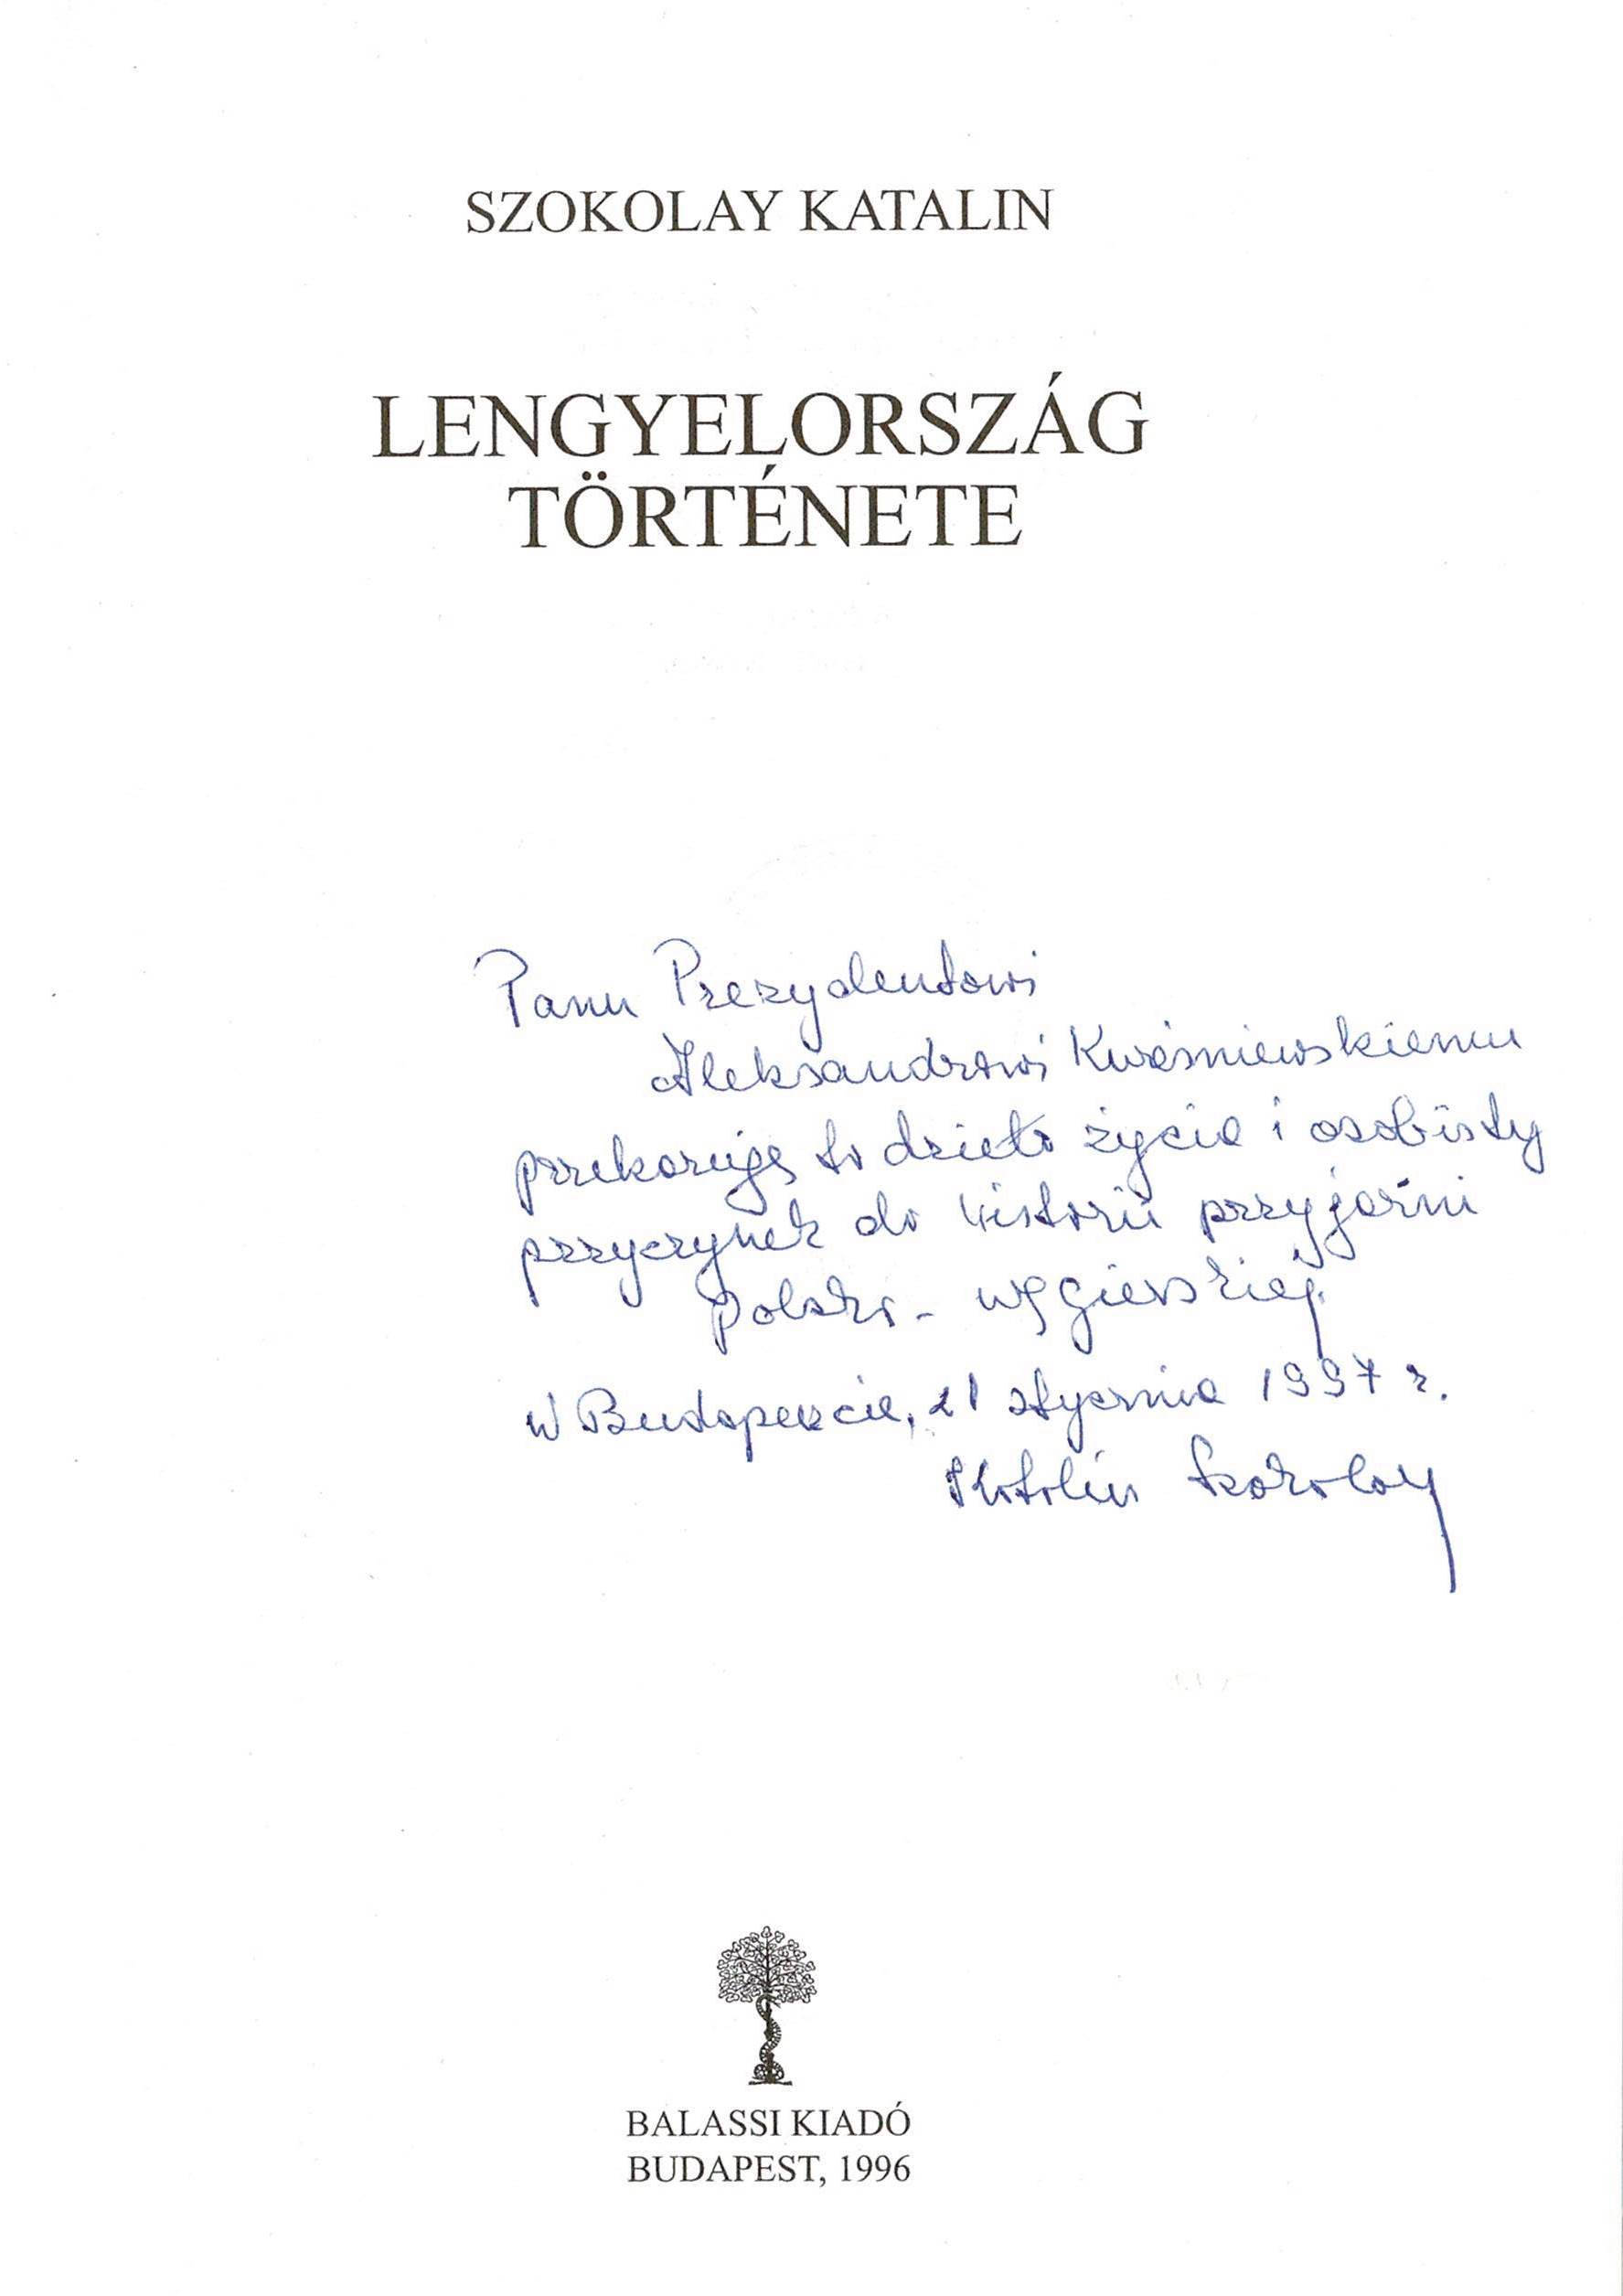 SZOKOLAY KATALIN
LENGYELORSZÁG
TÖRTÉNETE
Panu Prezydentowi
Aleksandrowi Kwaśniewskiemu
przekazuję to dzieło życia i osobisty
przyczynek do historii przyjaźni
polsko - węgierskiej.
W Budapeszcie, 21 stycznia 1997 r.
Katalin Szokolay
BALASSI KIADÓ
BUDAPEST, 1996